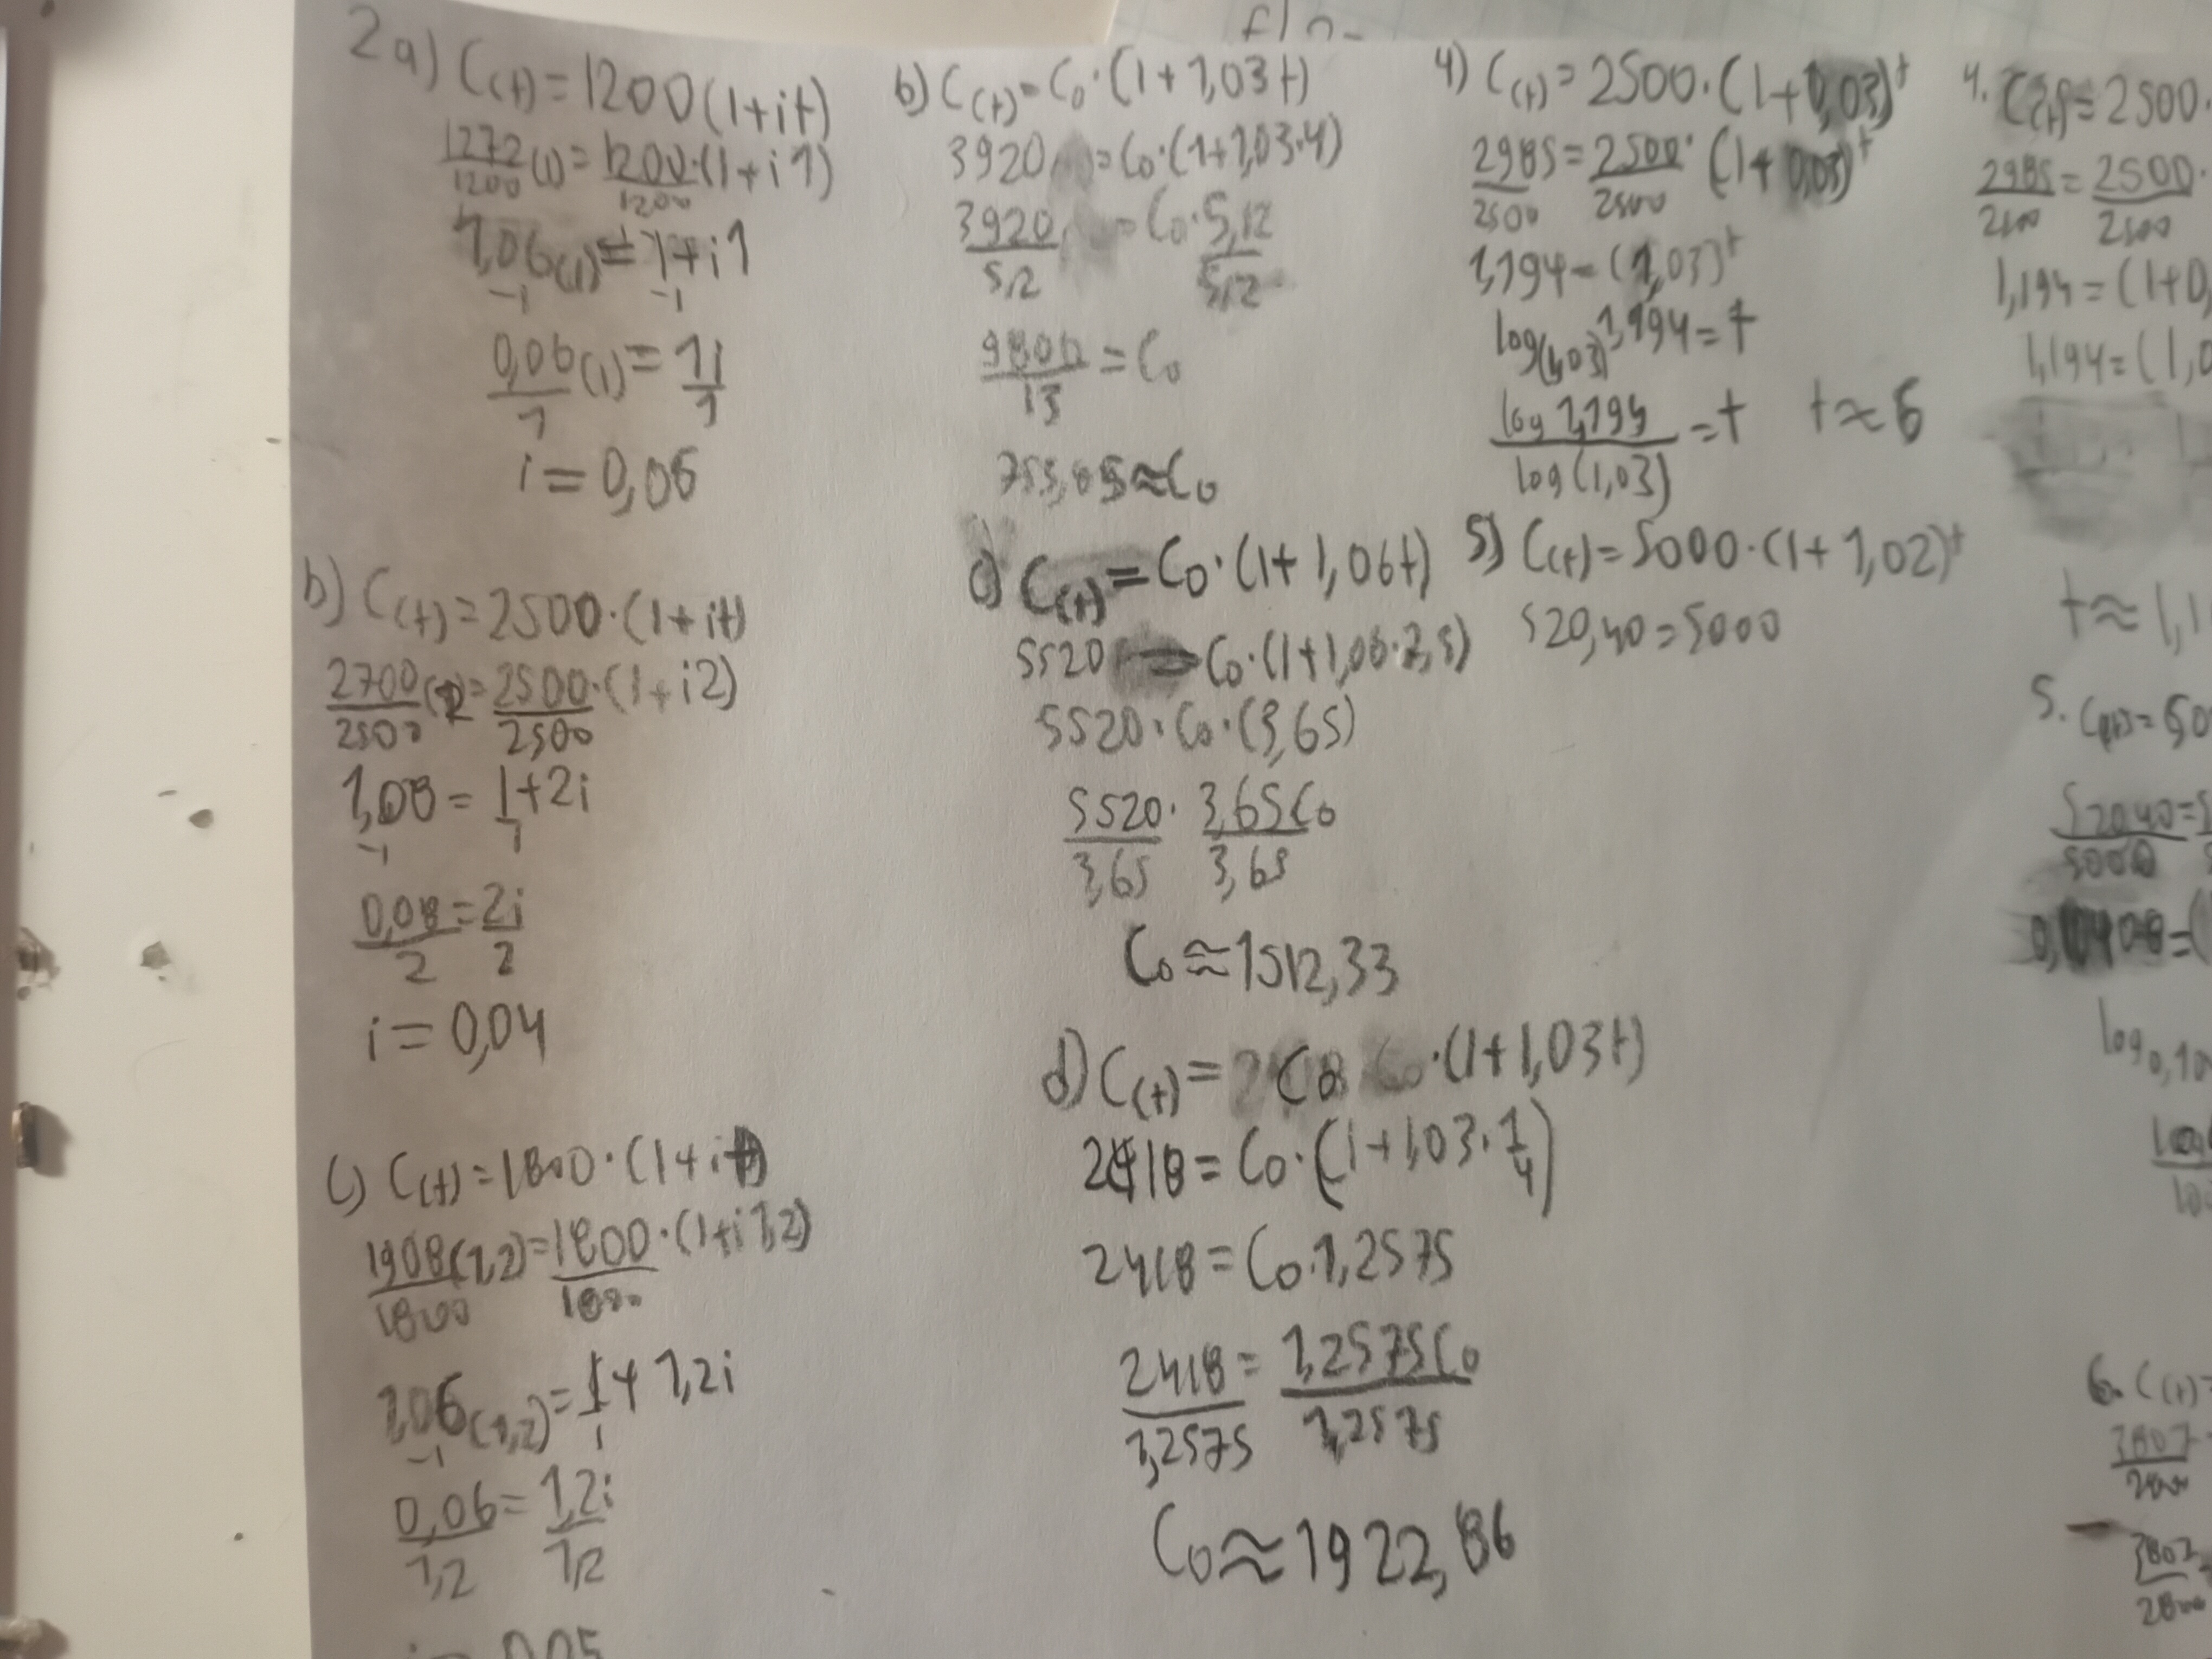 2a) C(t)=1200(1+it)
1272/1200 (1)=1200/1200·(1+i1)
1,06(1)=1+i1
-1 -1
0,06/1 (1)=1i/1
i=0,06
b) C(t)=2500·(1+it)
2700/2500 (2)=2500/2500·(1+i2)
1,08=1+2i
-1 1
0,08/2=2i/2
i=0,04
c) C(t)=1800·(1+it)
1908/1800 (1,2)=1800/1800·(1+i1,2)
1,06(1,2)=1+1,2i
-1 1
0,06/1,2=1,2i/1,2
i=0,05
b) C(t)=C0·(1+1,03t)
3920=C0·(1+1,03·4)
3920/5,2=C0·5,12/5,12
9800/13=C0
≈C0
c) C(t)=C0·(1+1,06t)
5520=C0·(1+1,06·2,5)
5520·C0·(3,65)
5520/3,65· 3,65C0/3,65
C0≈1512,33
d) C(t)=C0·(1+1,03t)
2418=C0·(1+1,03·1/4)
2418=C0·1,2575
2418/1,2575=1,2575C0/1,2575
C0≈1922,86
4) C(t)=2500·(1+0,03)^t
2985/2500=2500·/2500 (1+0,03)^t
1,194=(1,03)^t
log(1,03)1,194=t
log 1,194/log(1,03)=t t≈6
5) C(t)=5000·(1+1,02)^t
520,40=5000
4. C(t)=2500·
2985/2500=2500·/2500
1,194=(1+0,
1,194=(1,0
t≈1,1
5.
6. C(t)=